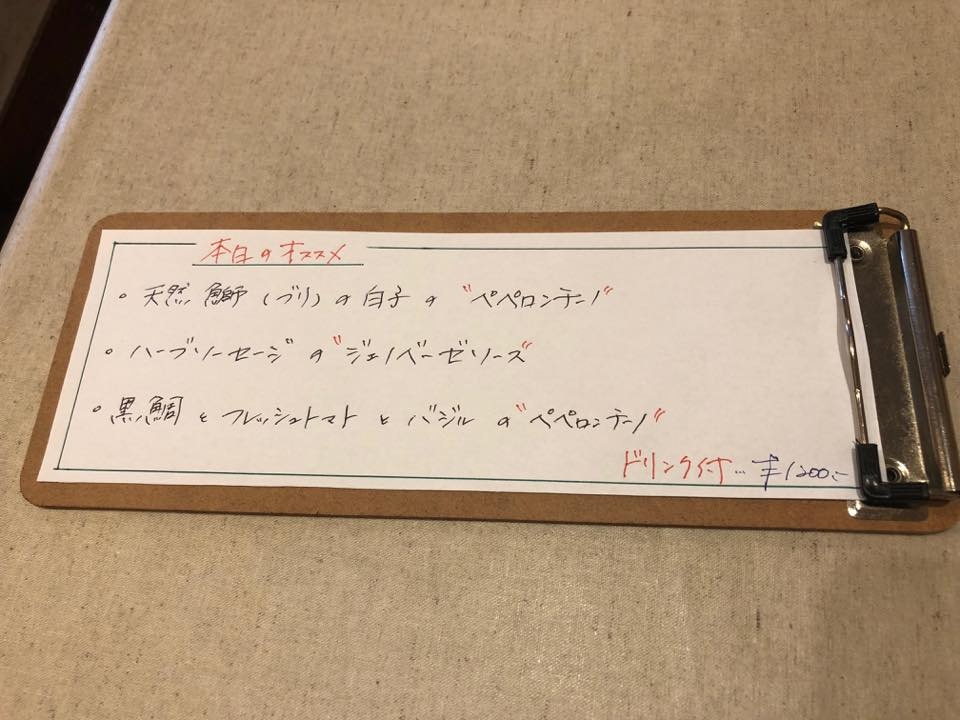 本日のオススメ
・天然鰤(ブリ)の白子の"ペペロンチーノ"
・ハーブソーセージの"ジェノベーゼソース"
・黒鯛とフレッシュトマトとバジルの"ペペロンチーノ"
ドリンク付…¥1200.-